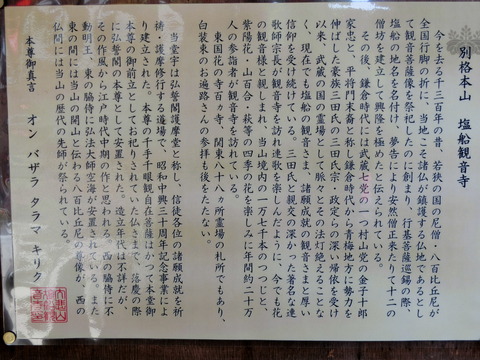 別格本山　塩船観音寺
今を去る千三百年の昔、若狭の国の尼僧・八百比丘尼が
全国行脚の折に、当地こそ諸仏が鎮護する仏地であるとし
て観音菩薩像を祭祀したのに創まり、行基菩薩巡錫の際、
塩船の地名を名付け、夢告により安然僧正来たりて十二の
僧坊を建立して興隆を極めたと伝えられている。
その後、鎌倉時代には武蔵七党の一つ村山党の金子十郎
家忠と、平将門の末裔と称し鎌倉時代から青梅地方に勢力を
伸ばした豪族三田氏の三田氏宗・政定らの深い帰依を受け
以来、武蔵の国の霊場として脈々とその法灯絶えることな
く、現在でも塩船の観音さま、諸願成就の観音さまと厚い
信仰を受け続けている。三田氏と親交の深かった著名な連
歌師宗長が観音寺を訪れ連歌を楽しんだように、今でも花
の観音様と親しまれ、当山境内の一万七千本のつつじと、
紫陽花・山百合・萩等の四季の花を楽しみに年間約二十万
人の参詣者が観音寺を訪れている。
東国花の寺百ヶ寺、関東八十八ヶ所霊場の札所でもあり、
白装束のお遍路さんの参拝も後をたたない。
当堂宇は弘誓閣護摩堂と称し、信徒各位の諸願成就を祈
祷・護摩修行する道場で、昭和中興三十周年記念事業によ
り建立された。本尊の千手千眼観自在菩薩はかつて本堂御
本尊の御前立としてお祀りされていた仏さまで、落慶の際
に弘誓閣の本尊として安置された。造立年代は不詳だが、
その作風から江戸時代中期の作と思われる。西の脇侍に不
動明王、東の脇侍に弘法大師空海が安置されている。また
東の間には当山の開山と伝わる八百比丘尼の尊像が、西の
仏間には当山の歴代の先師が祭られている。
本尊御真言　オン　バザラ　タラマ　キリク